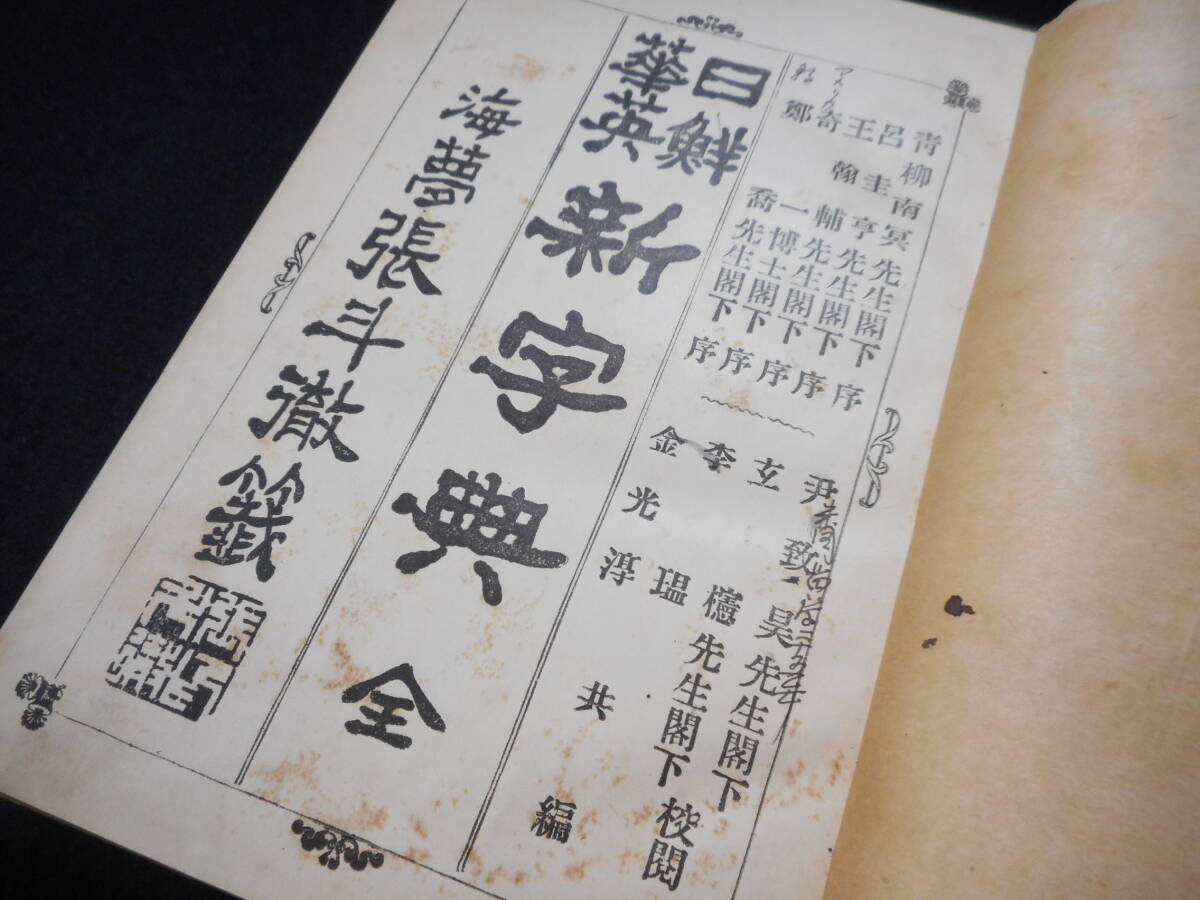 青柳南冥先生閣下 序
呂圭亨先生閣下 序
王翰輔先生閣下 序
奇一博士閣下 序
鄭喬先生閣下 序
尹致昊先生閣下
玄櫶先生閣下 校閱
李瑥
金光淳 共編
日鮮
華英
新字典全
海夢張斗徹籤